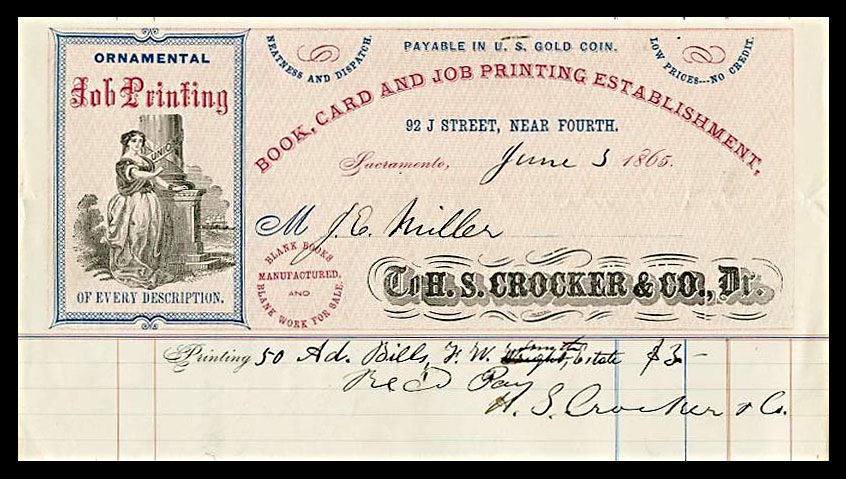 ORNAMENTAL
Job Printing
UNION
OF EVERY DESCRIPTION.
NEATNESS AND DISPATCH.
PAYABLE IN U. S. GOLD COIN.
LOW PRICES---NO CREDIT.
BOOK, CARD AND JOB PRINTING ESTABLISHMENT,
92 J STREET, NEAR FOURTH.
Sacramento, June 3 1865.
M J. E. Miller
BLANK BOOKS
MANUFACTURED,
AND
BLANK WORK FOR SALE.
To H. S. CROCKER & CO., Dr.
Printing 50 Ad. Bills, F. W. Estate $3 –
Rec'd Pay
H. S. Crocker & Co.